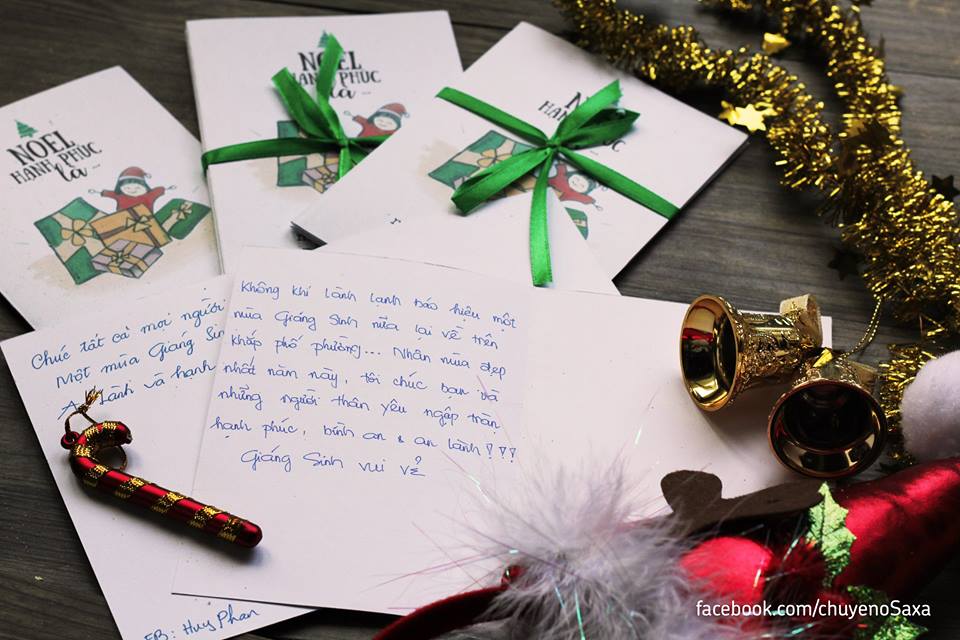 NOEL
HẠNH PHÚC
là ...
NOEL
HẠNH PHÚC
là ...
NOEL
HẠNH
Chúc tất cả mọi người
Một mùa Giáng Sin
lành và hạnh
FB: Huy Phan
Không khí lành lạnh báo hiệu một
mùa Giáng Sinh nữa lại về trên
khắp phố phường... Nhân mùa đẹp
nhất năm này, tôi chúc bạn và
những người thân yêu ngập tràn
hạnh phúc, bình an & an lành!!!
Giáng Sinh vui vẻ
facebook.com/chuyenoSaxa